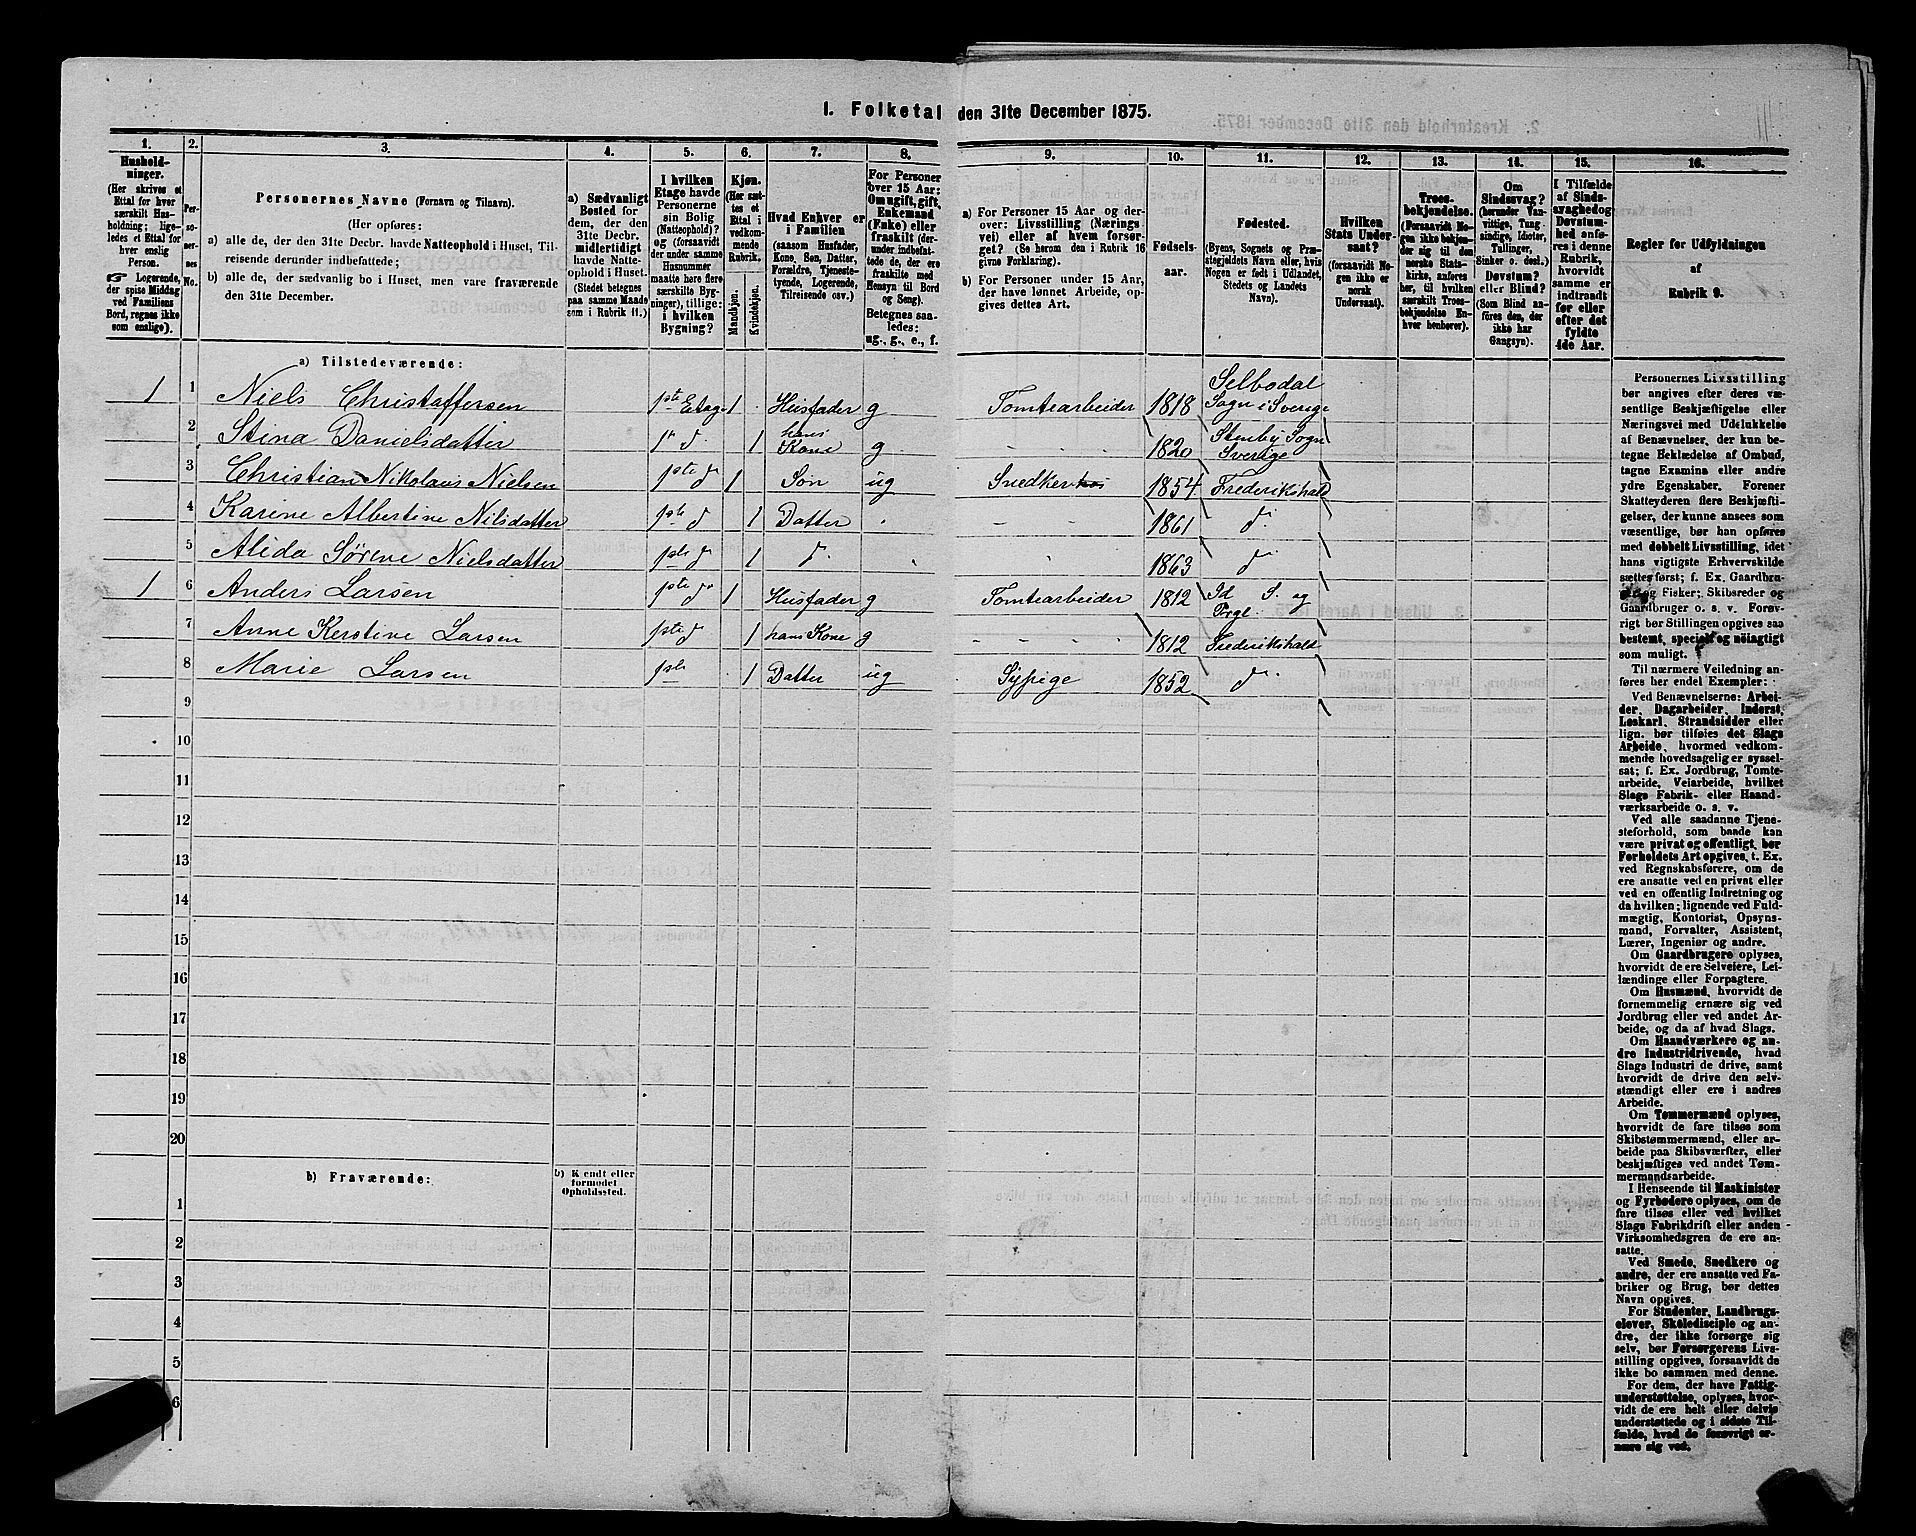 1. Folketal den 31te December 1875.
1.
2.
3.
4.
5.
6.
7.
8.
9.
10.
11.
12.
13.
14.
15.
16.
Hushold-
ninger.
(Her skrives et
Ettal for hver
særskilt Hus-
holdning; lige-
ledes et Ettal for
hver enslig
Person.
☞ Logerende,
der spise Middag
ved Familiens
Bord, regnes ikke
som enslige).
Per-
so-
ner-
nes
No.
Personernes Navne (Fornavn og Tilnavn).
(Her opføres:
a) alle de, der den 31te Decbr. havde Natteophold i Huset, Til-
reisende derunder indbefattede;
b) alle de, der sædvanlig bo i Huset, men vare fraværende
den 31te December.
a) Sædvanligt
Bosted for
dem, der den
31te Decbr.
midlertidigt
havde Natte-
ophold i Huset.
(Stedet betegnes
paa samme Maade
som i Rubrik 11.)
I hvilken
Etage havde
Personerne
sin Bolig
(Natteophold)?
og (forsaavidt
der under samme
Husnummer
maatte høre flere
særskilte Byg-
ninger), tillige:
i hvilken
Bygning?
Kjøn.
(Her sæt-
tes et
Ettal i
vedkom-
mende
Rubrik.
Mandkjøn.
Kvindekjøn.
Hvad Enhver er
i Familien
(saasom Husfader,
Kone, Søn, Datter,
Forældre, Tjeneste-
tyende, Logerende,
Tilreisende osv.)
For Personer
over 15 Aar:
Om ugift, gift,
Enkemand
(Enke) eller
fraskilt (der-
under indbefat-
tede de, der ere
fraskilte med
Hensyn til Bord
og Seng).
Betegnes saa-
ledes:
ug., g., e., f.
a) For Personer 15 Aar og der-
over: Livsstilling (Nærings-
vei) eller af hvem forsør-
get? (Se herom den i Rubrik 16
givne Forklaring).
b) For Personer under 15 Aar,
der have lønnet Arbeide, op-
gives dettes Art.
Fødsels-
aar.
Fødested.
(Byens, Sognets og Præ-
stegjeldets Navn eller, hvis
Nogen er født i Udlandet,
Stedets og Landets
Navn).
Hvilken
Stats Under-
saat?
(forsaavidt No-
gen ikke er
norsk
Undersaat).
Troes-
bekjendelse.
(Forsaavidt No-
gen ikke bekjen-
der sig til den
norske Stats-
kirke, anføres
her, til hvilken
særskilt Troes-
bekjendelse En-
hver henhører).
Om
Sindssvag?
(herunder Van-
vittige, Tung-
sindige, Idioter,
Tullinger,
Sinker o. desl.)
Døvstum?
eller Blind?
(Som Blind an-
føres den, der
ikke har
Gangsyn).
I Tilfælde
af Sinds-
svaghed og
Døvstum-
hed anfø-
res i denne
Rubrik,
hvorvidt
samme er
indtraadt
før eller
efter det
fyldte
4de Aar.
Regler for Udfyldningen
af
Rubrik 9.
a) Tilstedeværende:
1 1 Niels Christaffersen 1ste Etage 1 Husfader g Tomtearbeider 1818 Selbodal Sogn i Sverige
2 Stina Danielsdatter d 1 hans Kone g 1820 Stenby Sogn Sverige
3 Christian Nikolaus Nielsen 1ste d 1 Søn ug Snedker 1854 Frederikshald
4 Karine Albertine Nilsdatter 1ste d 1 Datter 1861 d
5 Alida Sørene Nielsdatter 1ste d 1 d 1863 d
1 6 Anders Larsen 1ste do 1 Husfader g Tomtearbeider 1812 Id S. og
7 Anne Kerstine Larsen 1ste d 1 hans Kone g 1812 Frederikshald
8 Marie Larsen 1ste 1 Datter ug Sypige 1852 d
9
10
11
12
13
14
15
16
17
18
19
20
b) Fraværende:
b) Kjendt eller
formodet
Opholdssted.
1
2
3
4
5
6
Personernes Livsstilling
bør angives efter deres væ-
sentlige Beskjæftigelse eller
Næringsvei med Udelukkelse
af Benævnelser, der kun be-
tegne Beklædelse af Ombud,
tagne Examina eller andre
ydre Egenskaber. Forener
Skatteyderen flere Beskjæfti-
gelser, der kunne ansees som
væsentlige, bør han opføres
med dobbelt Livsstilling, idet
hans vigtigste Erhvervskilde
sættes først; f. Ex. Gaardbru-
ger og Fisker; Skibsreder og
Gaardbruger o. s. v. Forøv-
rigt bør Stillingen opgives saa
bestemt, specielt og nöiagtigt
som muligt.
Til nærmere Veiledning an-
føres her endel Exempler:
Ved Benævnelserne: Arbei-
der, Dagarbeider, Inderst,
Løskarl, Strandsidder eller
lign. bør tilføies det Slags
Arbeide, hvormed vedkom-
mende hovedsagelig er syssel-
sat; f. Ex. Jordbrug, Tomte-
arbeide, Veiarbeide, hvilket
Slags Fabrik- eller Haand-
værksarbeide o. s. v.
Ved alle saadanne Tjene-
steforhold, som baade kan
være privat og offentligt, bør
Forholdets Art opgives, t. Ex.
ved Regnskabsførere, om de
ere ansatte ved en privat eller
ved en offentlig Indretning og
da hvilken; lignende ved Fuld-
mægtig, Kontorist, Opsyns-
mand, Forvalter, Assistent,
Lærer, Ingeniør og andre.
Om Gaardbrugere oplyses,
hvorvidt de ere Selveiere, Lei-
lændinge eller Forpagtere.
Om Husmænd, hvorvidt de
fornemmelig ernære sig ved
Jordbrug eller ved andet Ar-
beide, og da af hvad Slags.
Om Haandværkere og an-
dre Industridrivende, hvad
Slags Industri de drive, samt
hvorvidt de drive den selv-
stændigt eller ere i andres
Arbeide.
Om Tømmermænd oplyses,
hvorvidt de fare tilsøs som
Skibstømmermænd, eller ar-
beide paa Skibsværfter, eller
beskjæftiges ved andet Tøm-
mermandsarbeide.
I Henseende til Maskinister
og Fyrbødere oplyses, om de
fare tilsøs eller ved hvilket
Slags Fabrikdrift eller anden
Virksomhedsgren de ere an-
satte.
Ved Smede, Snedkere og
andre, der ere ansatte ved Fa-
briker og Brug, bør dettes
Navn opgives.
For Studenter, Landbrugs-
elever, Skoledisciple og an-
dre, der ikke forsørge sig
selv, bør Forsørgerens Livs-
stilling opgives, forsaavidt de
ikke bo sammen med denne.
For dem, der have Fattig-
understøttelse, oplyses, hvor-
vidt de ere helt eller delvis
understøttede og i sidste Til-
fælde, hvad de forøvrigt er-
nære sig ved.